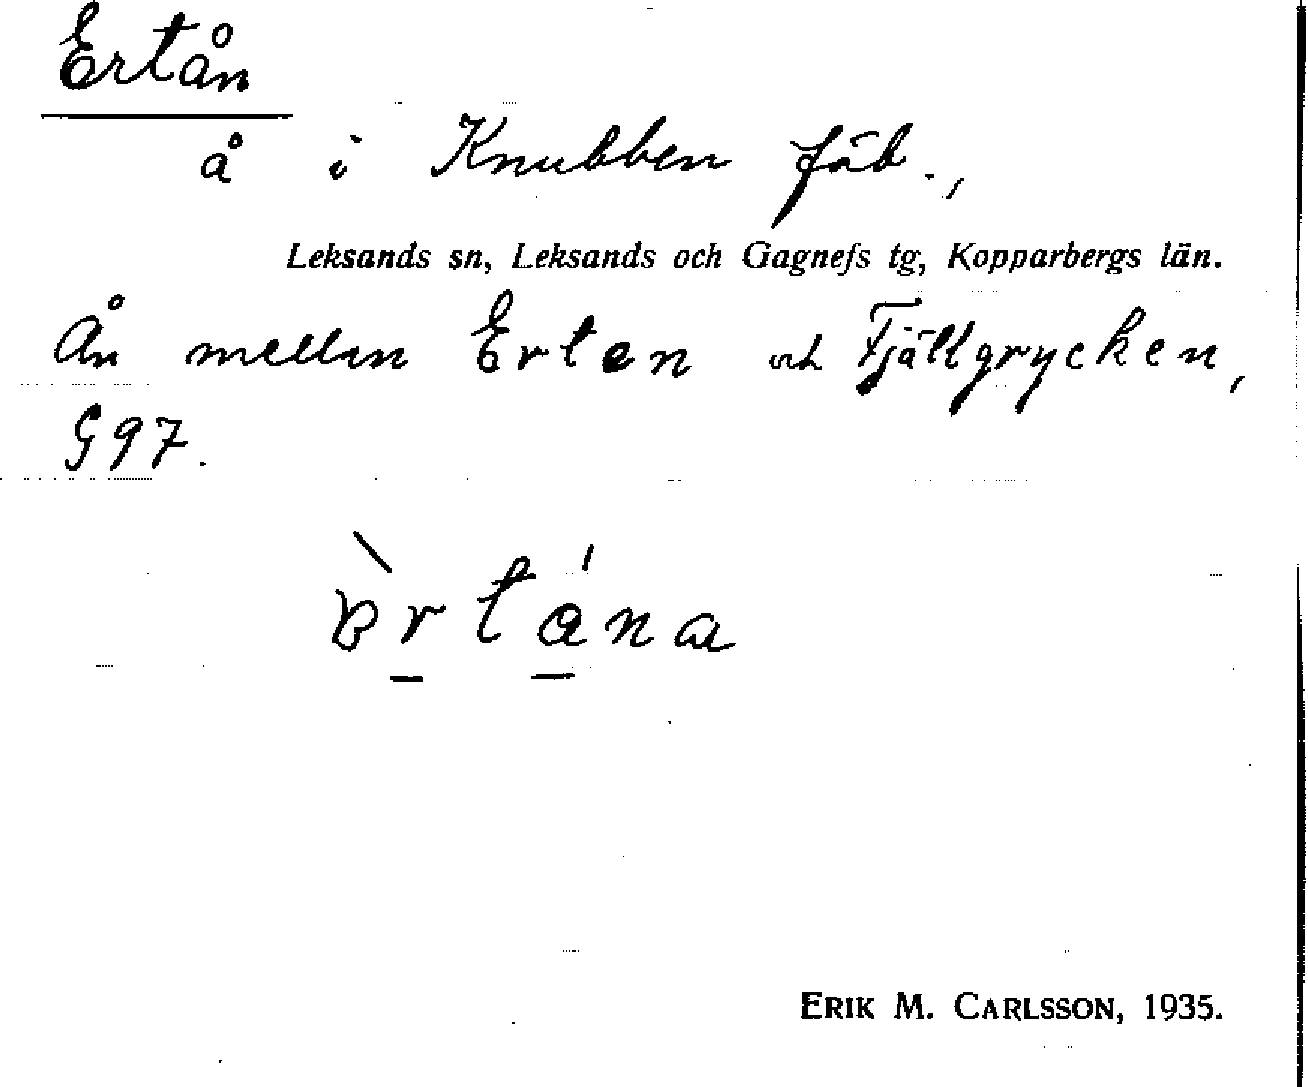 Ertån
å i Knubben fäb.,
Leksands sn, Leksands och Gagnefs tg, Kopparbergs län.
Ån mellan Erten och Fjällgrycken,
G97.
ERIK M. CARLSSON, 1935.